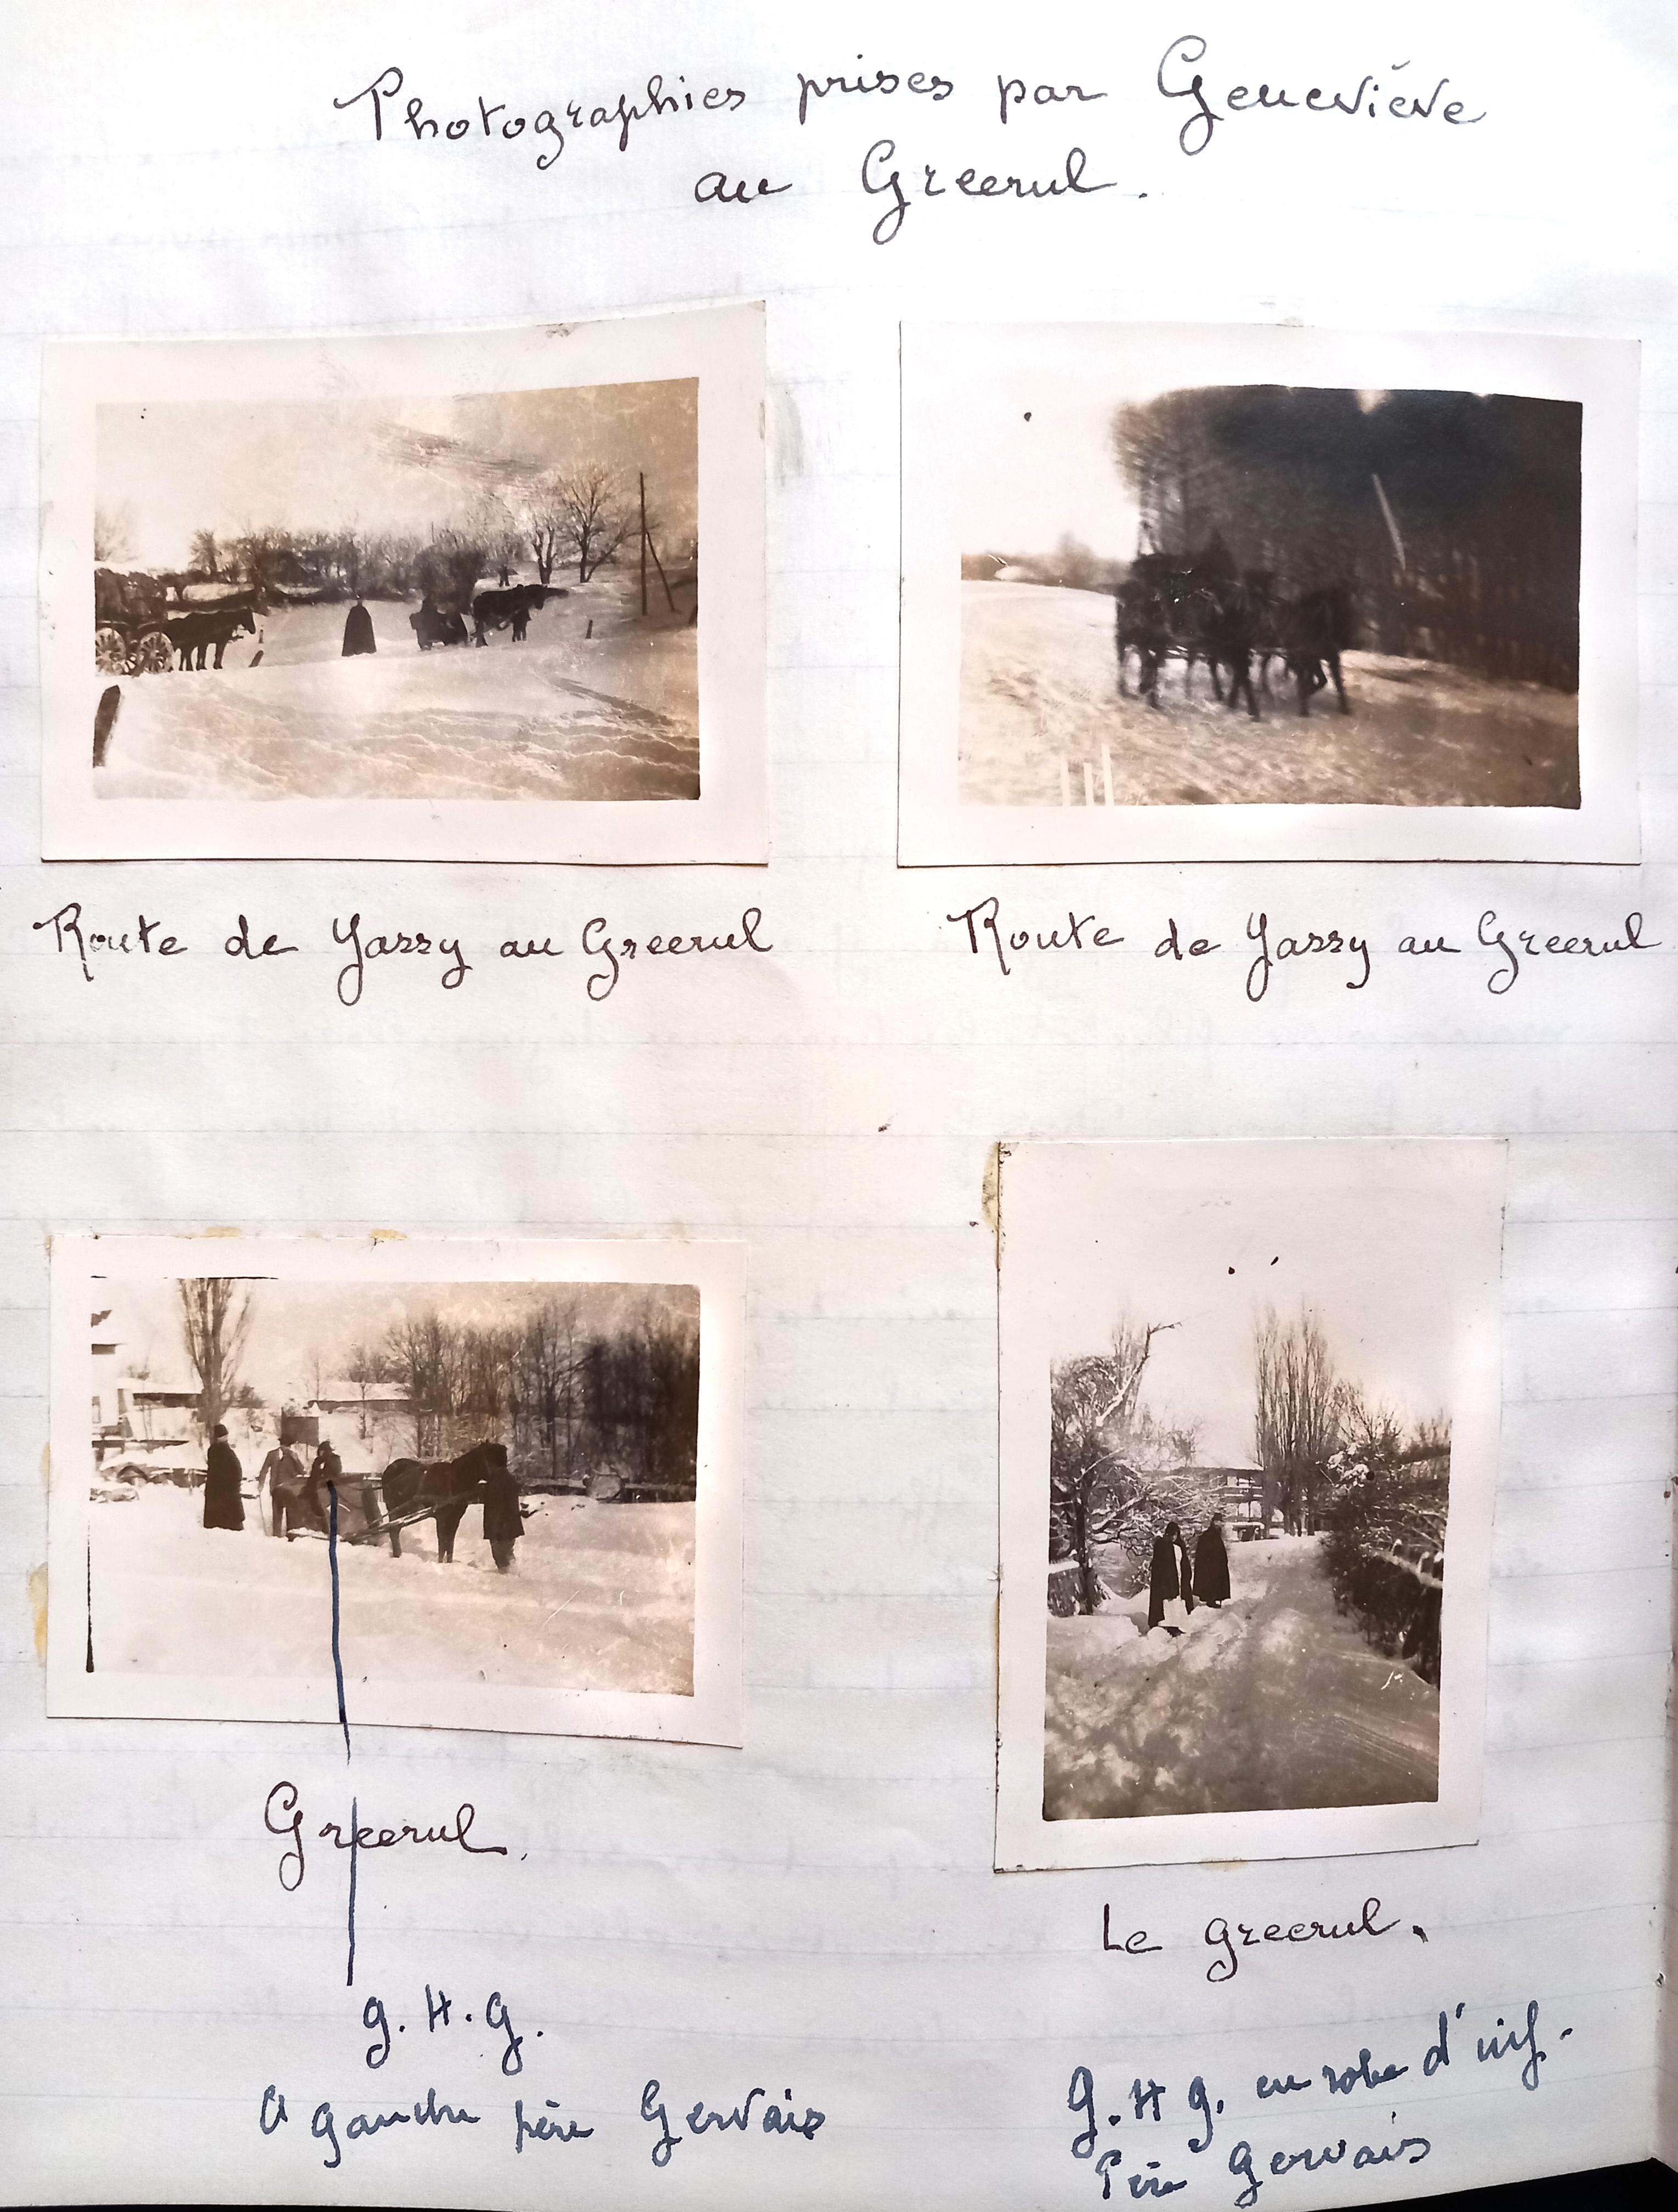 Photographies prises par Geneviève
au Greerul.
Route de Yassy au Greerul
Route de Yassy au Greerul
Greerul.
G. H. G.
A gauche père Gervais
Le Greerul.
G. H G. en robe d'inf.
Père Gervais